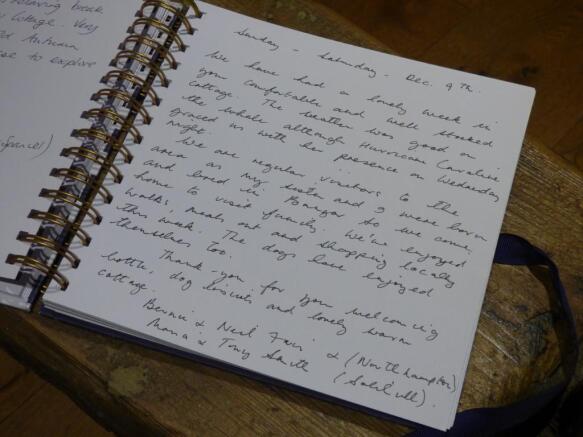 relaxing break
Cottage. Very
Autumn
to explore
Sunday - Saturday - Dec. 9th.
We have had a lovely week in
your comfortable and well stocked
cottage. The weather was good on
the whole although Hurricane Caroline
graced us with her presence on Wednesday
night.
We are regular visitors to the
area as my sister and I were born
and bred in Bangor so we come
home to visit family. We've enjoyed
walks, meals out and shopping locally
this week. The dogs have enjoyed
themselves too.
Thank-you for your welcoming
bottle, dog biscuits and lovely warm
cottage.
& (Northampton)
& Tony Smith (Solihull).